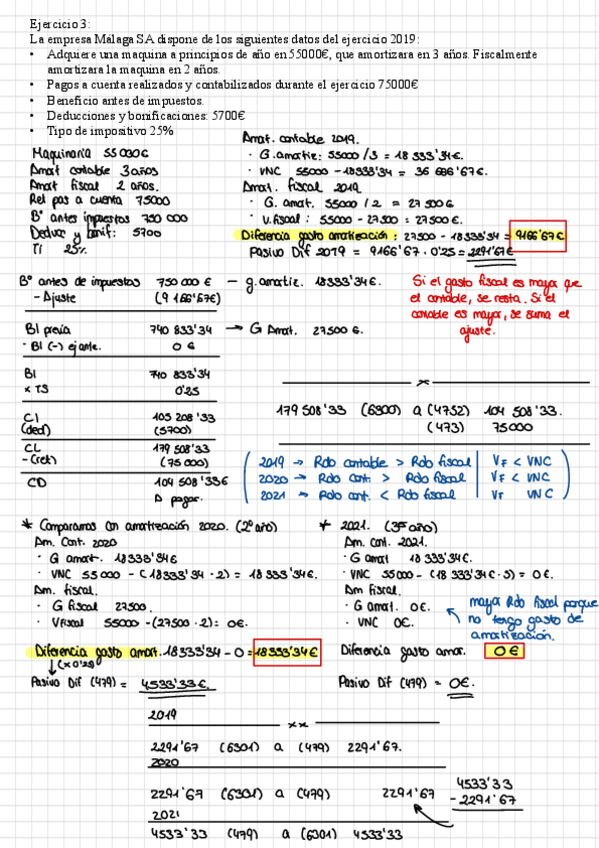 Ejercicio 3:
La empresa Málaga SA dispone de los siguientes datos del ejercicio 2019:
• Adquiere una maquina a principios de año en 55000€, que amortizara en 3 años. Fiscalmente
amortizara la maquina en 2 años.
• Pagos a cuenta realizados y contabilizados durante el ejercicio 75000€
• Beneficio antes de impuestos.
• Deducciones y bonificaciones: 5700€
• Tipo de impositivo 25%
Maquinaria 55 000€
Amat contable 3 años
Amat fiscal 2 años.
Rel pas a cuenta 75000
Bº antes impuestos 750 000
Deducc y bonif: 5700
TI 25%
Amat. contable 2019.
· G. amortiz: 55000 / 3 = 18 333'34€.
· VNC 55000 - 18333'34 = 36 686'67€.
Amat. fiscal 2019.
· G. amat. 55000 / 2 = 27 500€
· V. fiscal : 55000 - 27500 = 27500€.
Diferencia gasto amortización : 27500 - 18333'34 = 9166'67€
Pasivo Dif 2019 = 9166'67 · 0'25 = 2291'67€
Bº antes de impuestos 750 000€ - g. amortiz. 18333'34€.
- Ajuste (9 166'67€)
BI previa 740 833'34 → G Amat. 27500€.
- BI (-) ej ante. 0€
BI 740 833'34
x TS 0'25
CI 185 208'33
(ded) (5700)
CL 179 508'33
- (ret) (75 000)
CD 104 508'33€
A pagar.
Si el gasto fiscal es mayor que
el contable, se resta. Si el
contable es mayor, se suma el
ajuste.
x
179 508'33 (6300) a (4752) 104 508'33.
(473) 75000
2019 → Rdo contable > Rdo fiscal VF < VNC
2020 → Rdo cont. > Rdo fiscal VF < VNC
2021 → Rdo cont. < Rdo fiscal VF VNC
* Comparamos con amortización 2020. (2º año)
Am. Cont. 2020
· G amort. 18333'34€
· VNC 55000 - (18333'34 · 2) = 18 333'34€.
Am. fiscal.
· G fiscal 27500.
· V fiscal 55000 - (27500 · 2) = 0€.
Diferencia gasto amort. 18333'34 - 0 = 18333'34€
(x 0'25)
Pasivo Dif (479) = 4533'33€.
* 2021. (3er año)
Am. Cont. 2021.
· G amat 18 333'34€.
· VNC 55000 - (18 333'34€ · 3) = 0€.
Am fiscal.
· G amat. 0€.
· VNC 0€.
mayor Rdo fiscal porque
no tengo gasto de
amortización.
Diferencia gasto amor. 0€
Pasivo Dif (479) = 0€.
2019
x x
2291'67 (6301) a (479) 2291'67.
2020
2291'67 (6301) a (479) 2291'67
4533'33
- 2291'67
2021
4533'33 (479) a (6301) 4533'33